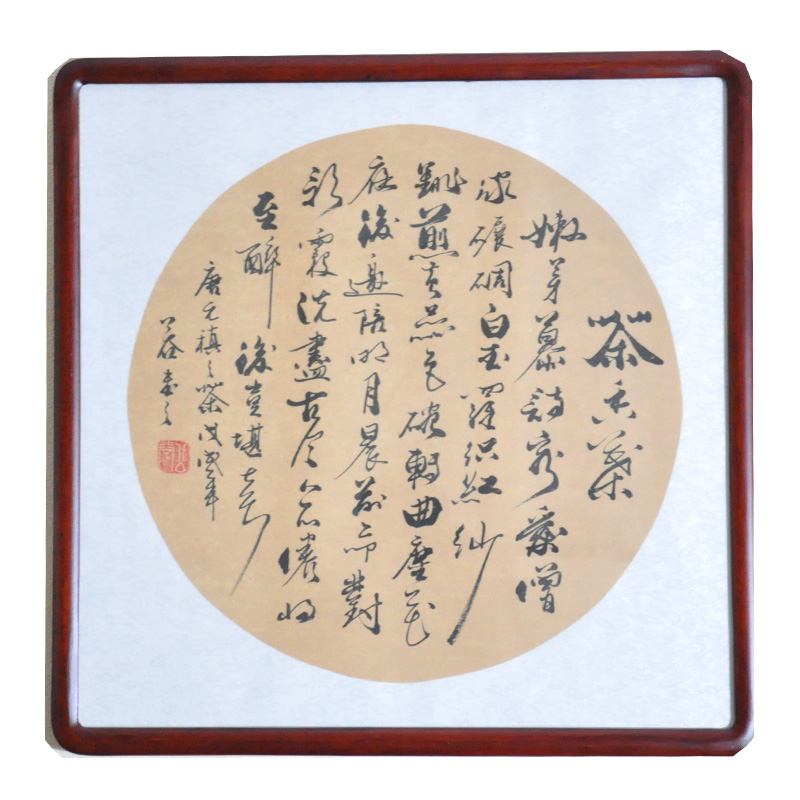 茶香葉
嫩芽慕詩客愛僧
家碾碉白玉羅織紅紗
銚煎黃蕊色碗轉曲塵花
夜後邀陪明月晨前命對
朝霞洗盡古今人不倦將
至醉後豈堪誇
唐元稹之茶戊戌年